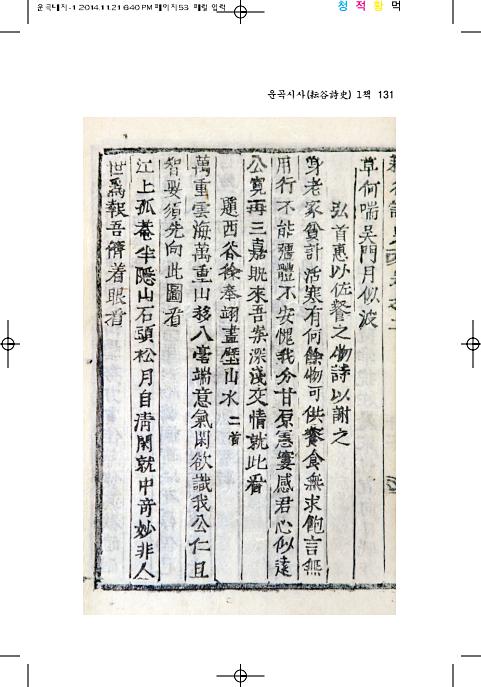 운곡내지-1 2014.11.21 6:40 PM 페이지53 매킬 입력
청 적 황 먹
운곡시사(耘谷詩史) 1책 131
草何喘吳門月似波
弘首惠以佐餐之物詩以謝之
身老家貧計活寒有何餘物可供餐食無求飽言無
用行不能彊體不安愧我分甘原憲寠感君心似遠
公寬再三嘉貺來吾案深淺交情就此看
題西谷徐奉翊畵壁山水 二首
萬重雲海萬重山移入毫端意氣閑欲識我公仁且
智要須先向此圖看
江上孤菴半隱山石頭松月自清閑就中奇妙非人
世爲報吾儕着眼看